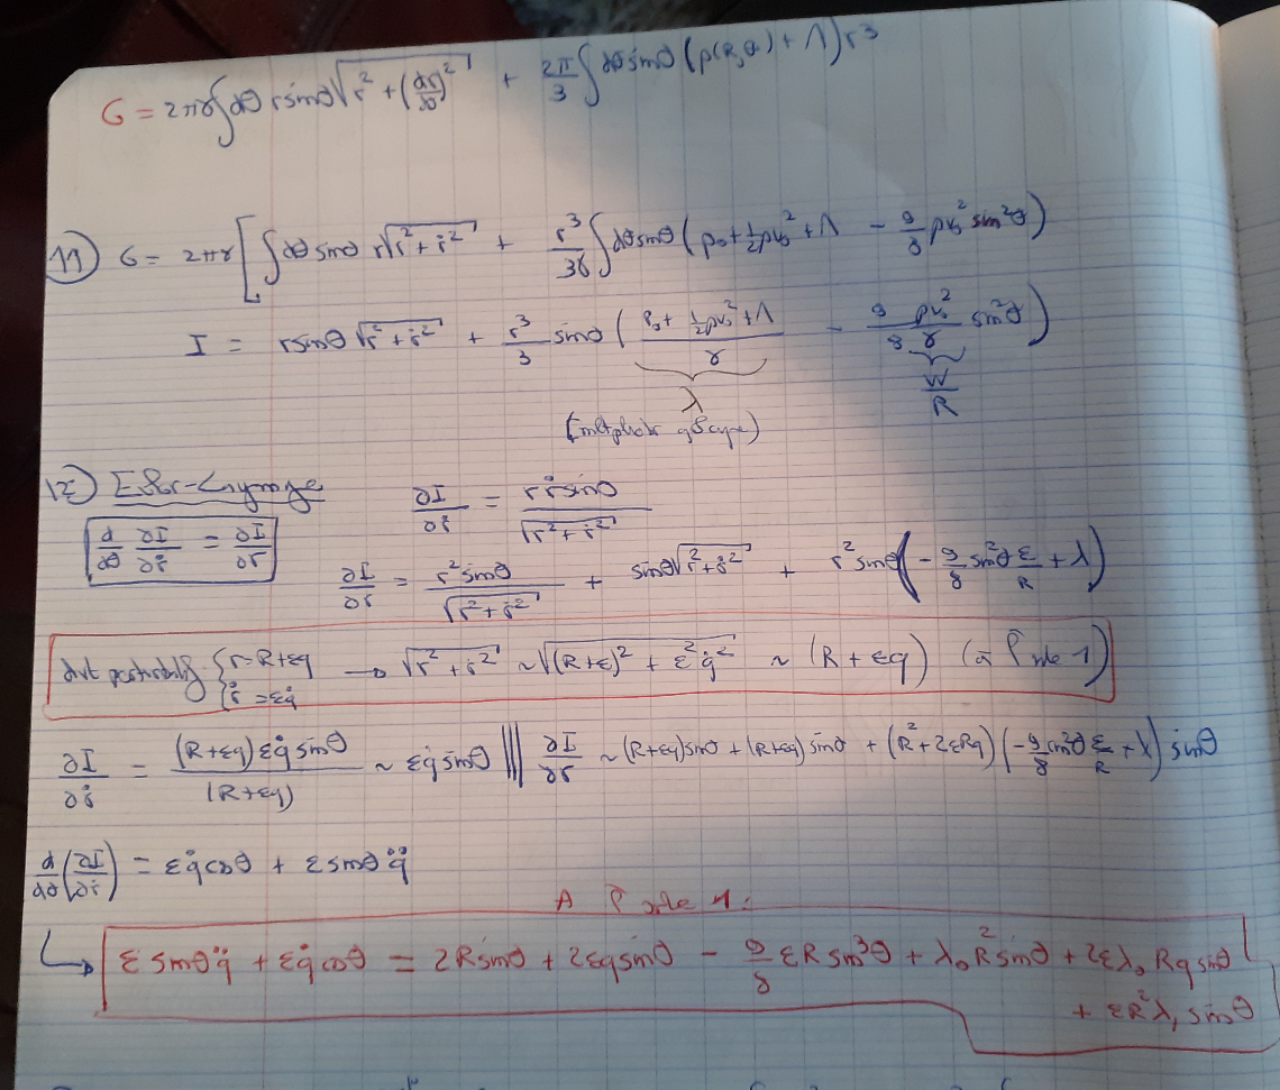 G = 2πγ∫dθ r sinθ √(r² + (dr/dθ)²) + 2π/3 ∫dθ sinθ (p(R,θ) + Λ) r³
11) G = 2πγ [ ∫dθ sinθ r√(r² + ṙ²) + r³/3γ ∫dθ sinθ (p₀ + ½ρv₀² + Λ - 9/8 ρv₀² sin²θ)
I = r sinθ √(r² + ṙ²) + r³/3 sinθ ( (P₀ + ½ρv₀² + Λ)/γ - 9/8 ρv₀²/γ sin²θ )
λ W/R
12) Euler-Lagrange ∂I/∂ṙ = r ṙ sinθ / √(r² + ṙ²)
d/dθ ∂I/∂ṙ = ∂I/∂r
∂I/∂r = r² sinθ / √(r² + ṙ²) + sinθ √(r² + ṙ²) + r² sinθ ( - 9/8 sin²θ ε/R + λ )
{ r = R+εq → √(r² + ṙ²) ~ √((R+ε)² + ε² q̇²) ~ (R + εq) (à l'ordre 1)
ṙ = εq̇
∂I/∂ṙ = (R+εq) εq̇ sinθ / (R+εq) ~ εq̇ sinθ ||| ∂I/∂r ~ (R+εq) sinθ + (R+εq) sinθ + (R² + 2εRq) ( - 9/8 sin²θ ε/R + λ ) sinθ
d/dθ (∂I/∂ṙ) = εq̇ cosθ + ε sinθ q̈
A l'ordre 1:
↳ ε sinθ q̈ + εq̇ cosθ = 2R sinθ + 2εq sinθ - 9/8 εR sin³θ + λ₀R² sinθ + 2ελ₀Rq sinθ
+ εR²λ₁ sinθ